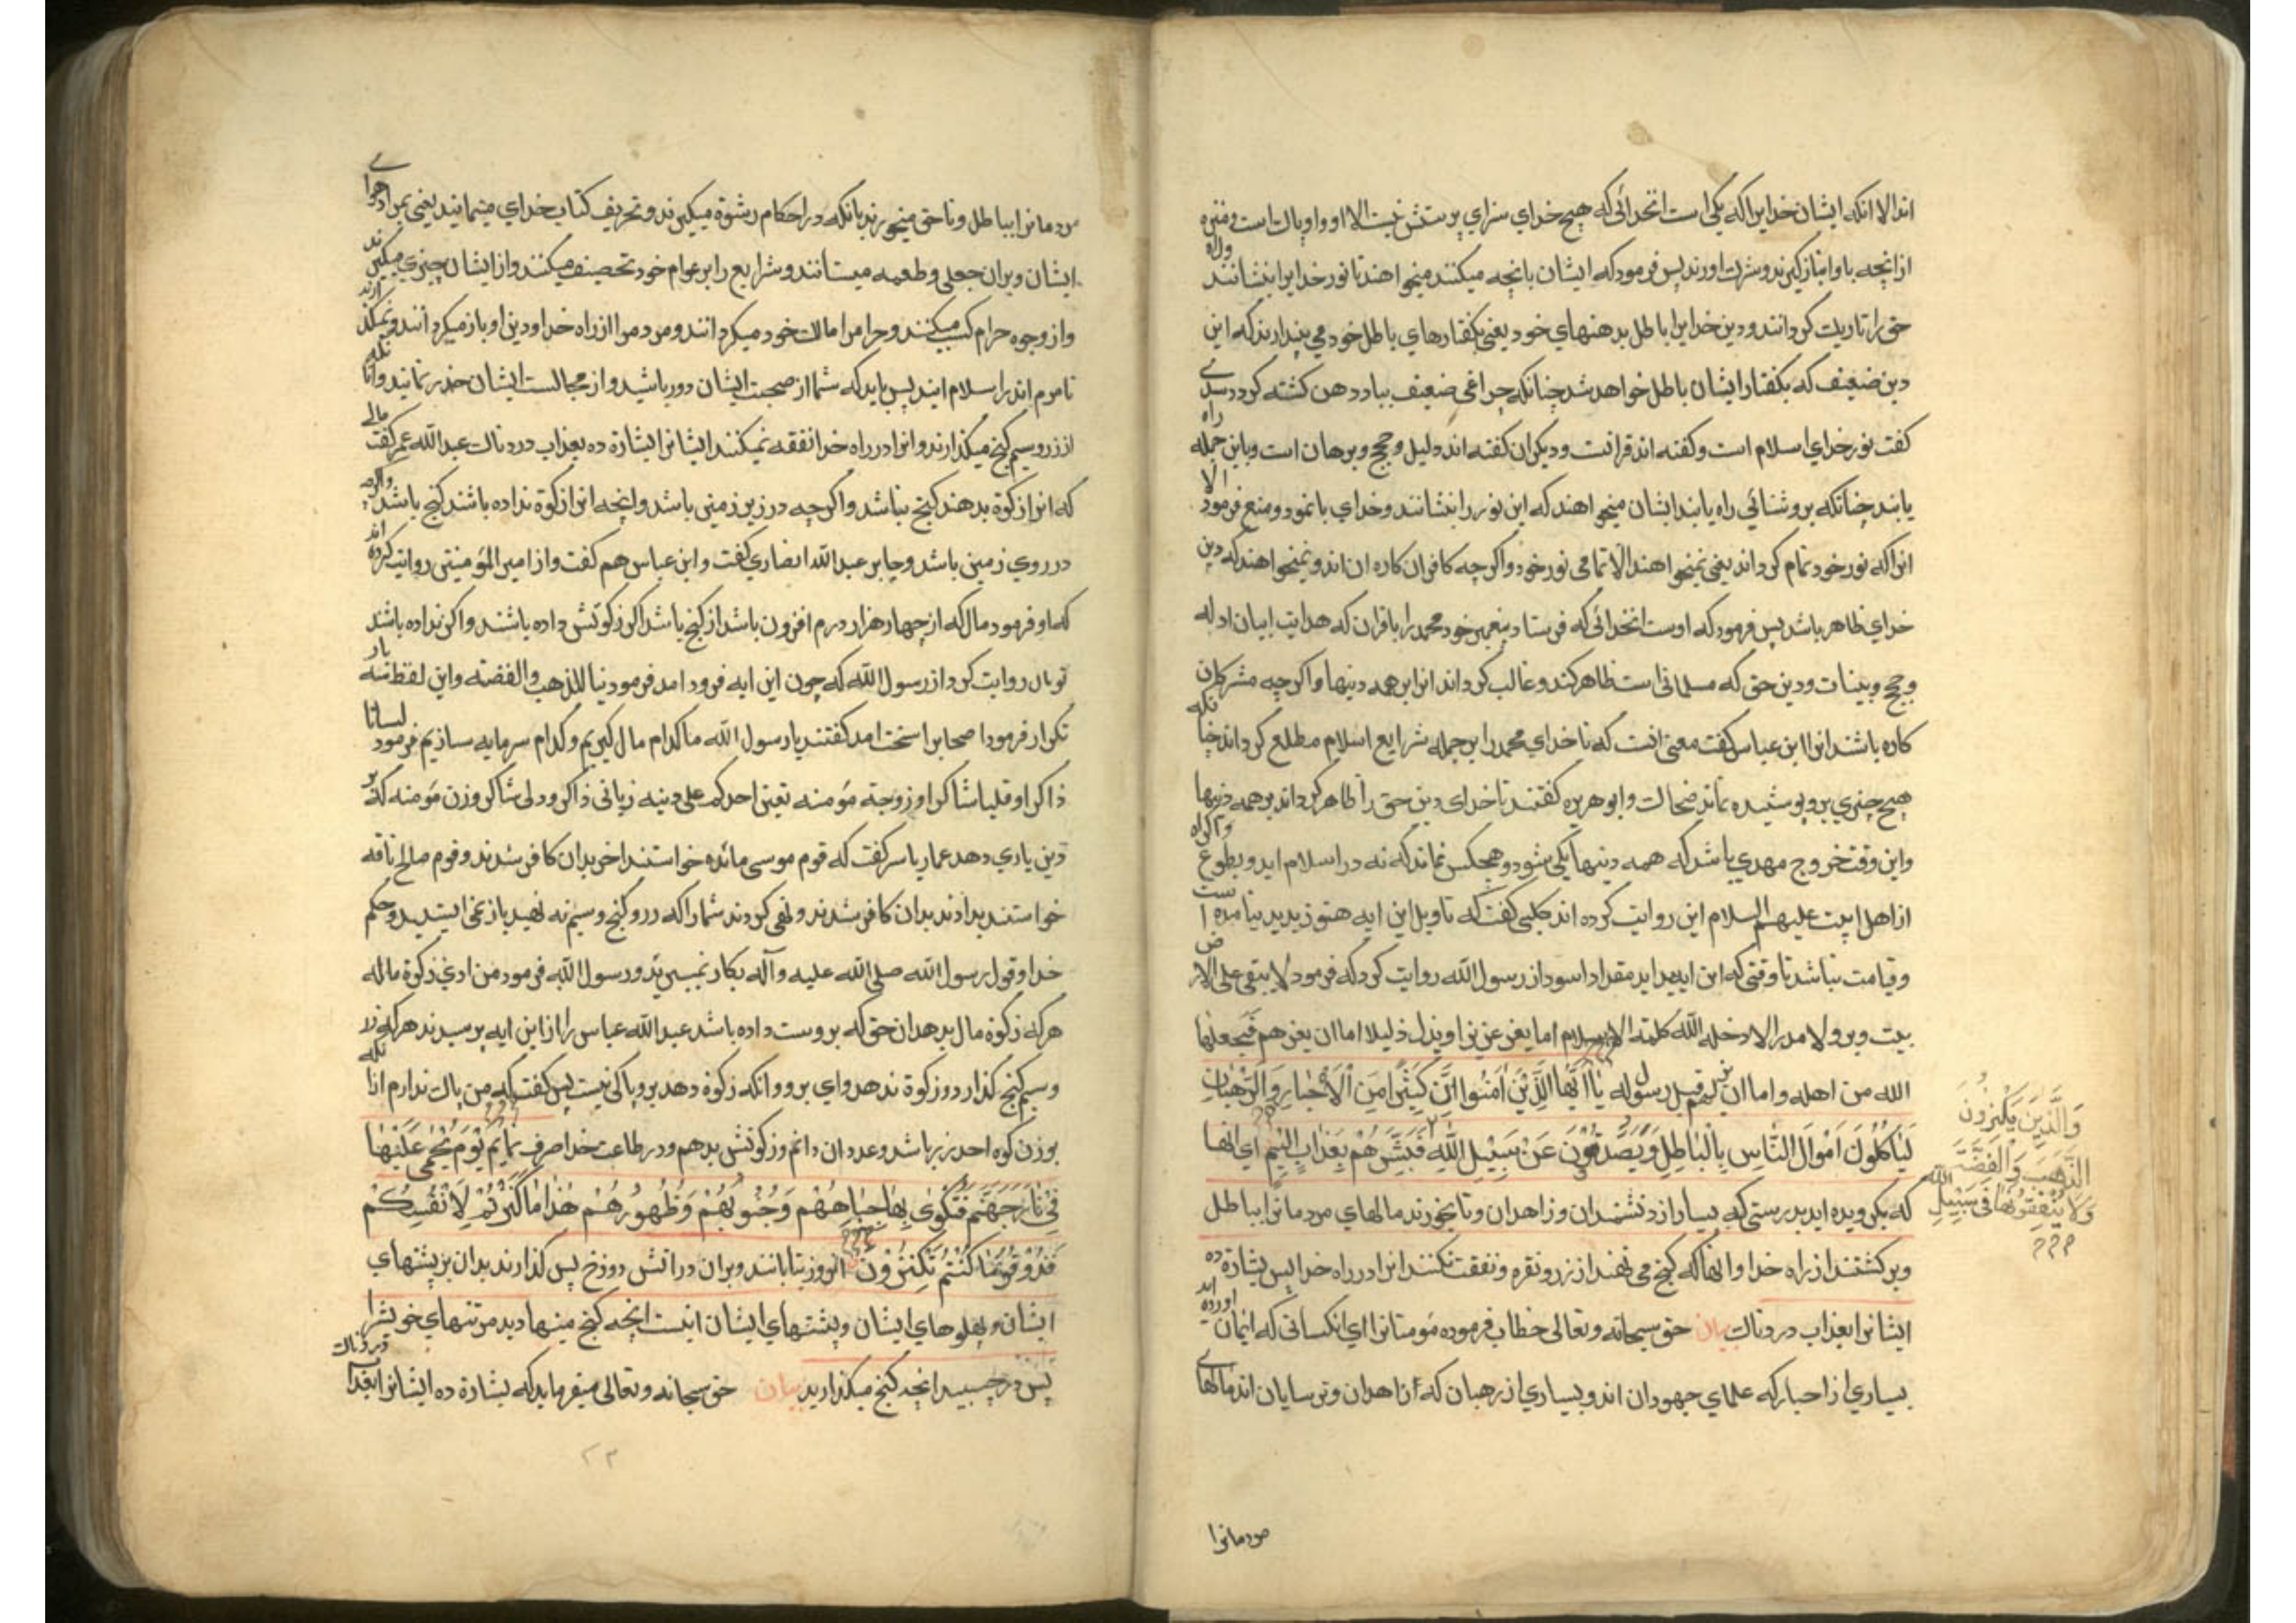 اند الا انکه ایشان خدایرا که یکی است انخدائی که هیچ خدای سزای پرستش نیست الا او و او پاکست و منزه
ازانچه باو انباز کیرند و شرک اورند پس فرمود که ایشان بانچه میکنند میخواهند تا نور خدایرا بنشانند و راه
حق را تاریک کردانند و دین خدایرا باطل بدهنهای خود یعنی بکفتارهای باطل خود می پندارند که این
دین ضعیف که بکفتار ایشان باطل خواهد شد چنانکه چراغی ضعیف بباد دهن کشته کردد سدی
کفت نور خدای اسلام است و کفته اند قرانست و دیکران کفته اند دلیل و حجج و برهان است و باین جمله راه
یابند چنانکه بروشنائی راه یابند ایشان میخواهند که این نور را بنشانند و خدای با نمود و منع فرمود الا
انرا که نور خود تمام کرداند یعنی نمیخواهند الا تمامی نور خود و اکرچه کافران کاره ان اند و نمیخواهند که دین
خدای ظاهر باشد پس فرمود که اوست انخدائی که فرستاد پیغمبر خود محمد را باقران که هدایت بیان ادله
و حجج و بینات و دین حق که مسلمانی است ظاهر کند و غالب کرداند انرا بر همه دینها و اکرچه مشرکان
کاره باشند انرا ابن عباس کفت معنی انست که تا خدای محمد را بر جمله شرایع اسلام مطلع کرداند چنانکه
هیچ چیزی برو پوشیده نماند ضحاک و ابو هریره کفتند تا خدای دین حق را ظاهر کرداند بر همه دینها
و این وقت خروج مهدی باشد که همه دینها یکی شود و هیچکس نماند که نه در اسلام اید و بطوع و اکراه
از اهل البیت علیهم السلام این روایت کرده اند کلبی کفت که تاویل این ایه هنوز پدید نیامده است
و قیامت نباشد تا وقتی که این ایه بیاید مقداد اسود از رسول الله روایت کرد که فرمود لا یبقی علی الارض
بیت وبر ولا مدر الا ادخله الله کلمته الاسلام اما بعز عزیز او بذل ذلیل اما ان یعزهم فیجعلها
الله من اهله و اما ان رسوله یا ایها الذین امنوا ان کثیرا من الاحبار والرهبان
لیاکلون اموال الناس بالباطل ویصدون عن سبیل الله فبشرهم بعذاب الیم ای انها
والذین یکنزون
الذهب والفضة
ولا ینفقونها فی سبیل الله
که بکرویده اید بدرستی که بسیار از دنشمندان و زاهدان و تا بخورند مالهای مردمانرا بباطل
و برکشتند از راه خدا و انها که کنج می نهند از زر و نقره و نفقت نکنند انرا در راه خدا پس بشارة ده
ایشانرا بعذاب دردناک بیان حق سبحانه و تعالی خطاب فرموده مومنانرا ای انکسانی که ایمان اورده اند
بسیاری از احبار که علمای جهودان اند و بسیاری از رهبان که زاهدان و ترسایان اند مالهای
مردمانرا
مردمانرا بباطل و ناحق میخورند بانکه در احکام رشوة میکیرند و تحریف کتاب خدای مینمایند یعنی بمراد هوای
ایشان و بران جعلی و طعمه میستانند و شرایع را بر عوام خود تحصیف میکنند و از ایشان چیزی میکیرند
و از وجوه حرام کسب میکنند و حرامرا مالک خود میکردانند و مردمرا از راه خدا و دین او باز میکردانند و نمیکذارند
تا مردم اندر اسلام ایند پس باید که شما از صحبت ایشان دور باشید و از مجالست ایشان حذر نمائید و انانکه
از زر و سیم کنج میکذارند و انرا در راه خدا نفقه نمیکنند ایشانرا بشارة ده بعذاب دردناک عبدالله عمر کفت مالی
که انرا زکوة بدهند کنج نباشد و اکرچه در زیر زمین باشد و انچه انرا زکوة نداده باشند کنج باشد و اکرچه
در روی زمین باشد و جابر عبدالله انصاری کفت و ابن عباس هم کفت و از امیر المومنین روایت کرده اند
که او فرمود مال که از چهار هزار درم افزون باشد از کنج باشد اکر زکوتش داده باشند و اکر نداده باشند
ثوبان روایت کرد از رسول الله که چون این ایه فرود امد فرمود تبا للذهب و الفضه و این لفظ سه بار
تکرار فرمود اصحابرا سخت امد کفتند یا رسول الله ما کدام مال کیریم و کدام سرمایه سازیم فرمود لسانا
ذاکرا و قلبا شاکرا و زوجة مومنه تعین احدکم علی دینه زبانی ذاکر و دلی شاکر و زن مومنه که بر
دین یاری دهد عمار یاسر کفت که قوم موسی مائده خواستند اخر بدان کافر شدند و قوم صالح ناقه
خواستند بدادند بدان کافر شدند و نهی کردند شما را که زر و کنج و سیم نه نهید باز نمی ایستید و حکم
خدا و قول رسول الله صلی الله علیه و آله بکار نمیبرید و رسول الله فرمود من ادی زکوة ماله
هرکه زکوة مال بدهد ان حق که بروست داده باشد عبدالله عباس را از این ایه پرسیدند هرکه زر
و سیم کنج کذارد و زکوة ندهد وای برو و انکه زکوة دهد برو باکی نیست پس کفت که من باک ندارم از انکه
بوزن کوه احد زر باشد و عدد ان دانم و زکوتش بدهم و در طاعت خدا صرف نمایم یوم یحمی علیها
فی نار جهنم فتکوی بها جباههم وجنوبهم وظهورهم هذا ما کنزتم لانفسکم
فذوقوا ما کنتم تکنزون انروز بتابانند و بران در اتش دوزخ پس کذارند بدان بر پیشهای
ایشان و پهلوهای ایشان و پشتهای ایشان اینست انچه کنج مینهادید مر تنهای خویشرا
پس در چسبید انچه کنج میکذارید بیان حق سبحانه و تعالی میفرماید که بشارة ده ایشانرا بعذاب دردناک